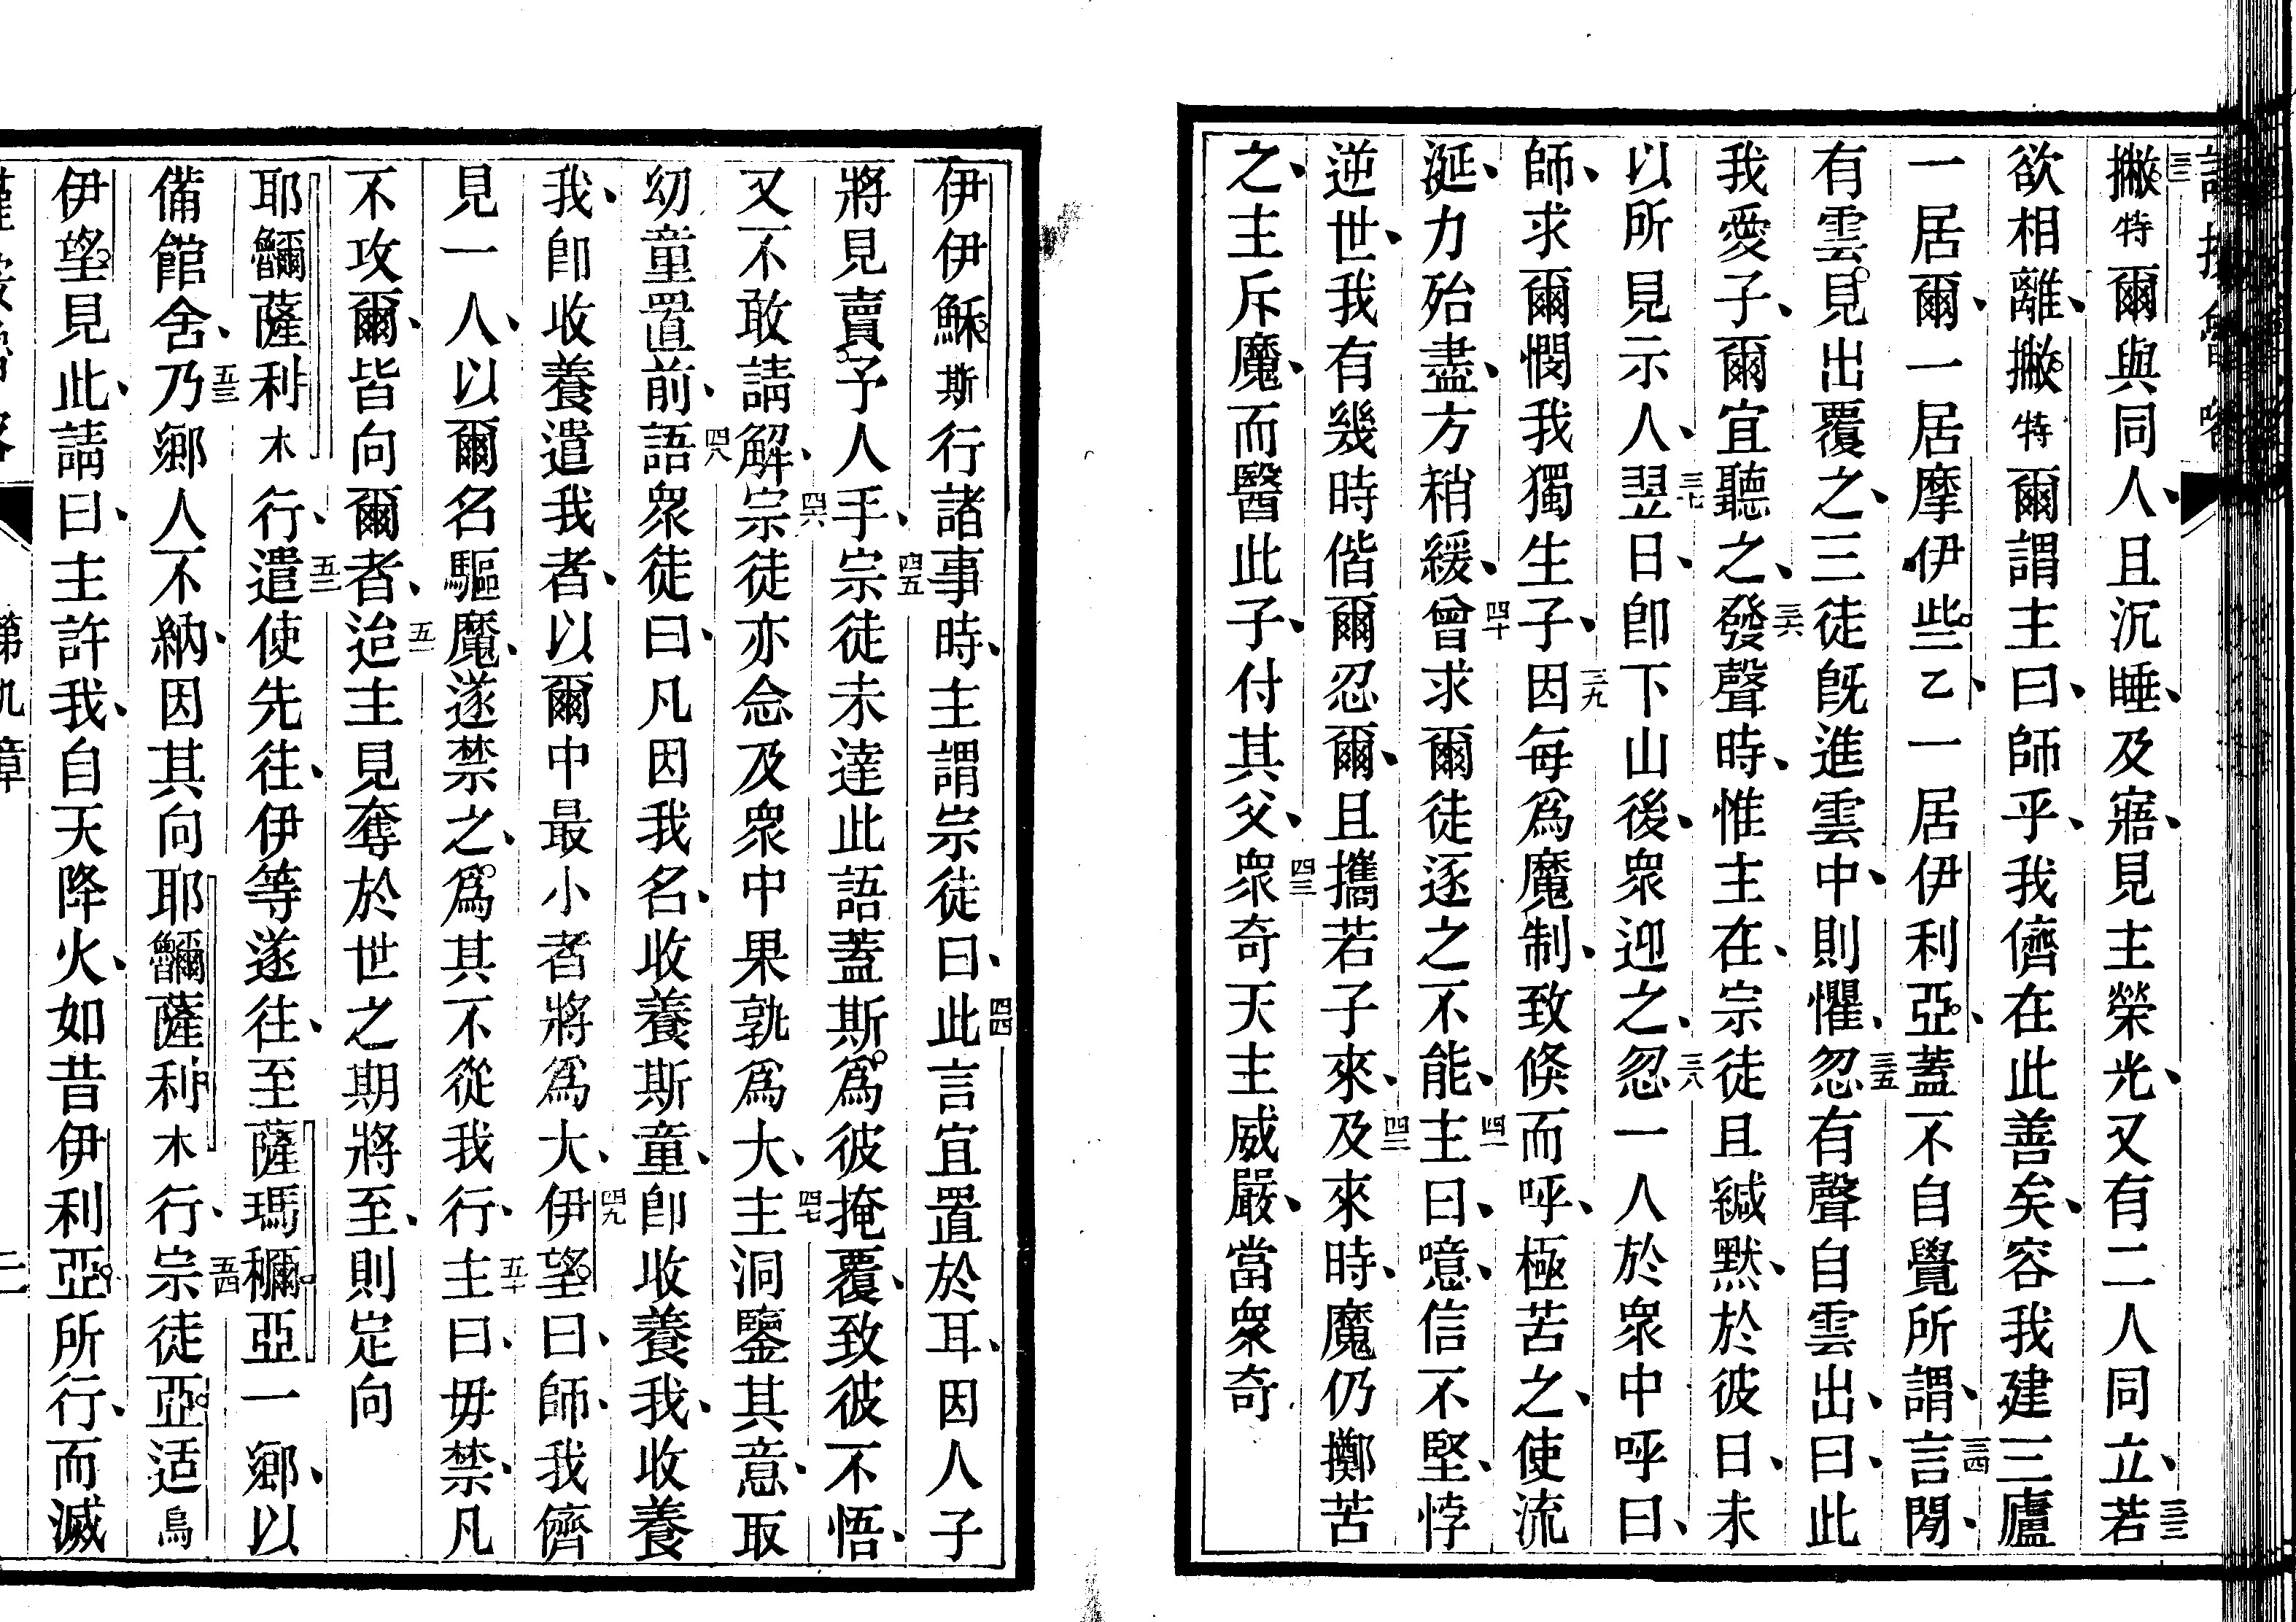 撇特爾與同人、且沉睡、及寤、見主榮光、又有二人同立、三三若
欲相離、撇特爾謂主曰、師乎、我儕在此善矣、容我建三廬
一居爾、一居摩伊些乙、一居伊利亞、蓋不自覺所謂、三四言閒、
有雲見出覆之、三徒旣進雲中、則懼、三五忽有聲自雲出、曰、此
我愛子、爾宜聽之、三六發聲時、惟主在、宗徒且緘默、於彼日、未
以所見示人、三七翌日、卽下山後、衆迎之、三八忽一人於衆中呼曰、
師、求爾憫我獨生子、三九因每爲魔制、致倐而呼、極苦之、使流
涎、力殆盡、方稍緩、四十曾求爾徒逐之不能、四一主曰、噫、信不堅、悖
逆世、我有幾時偕爾忍爾、且攜若子來、四二及來時、魔仍擲苦
之、主斥魔、而醫此子、付其父、四三衆奇天主威嚴、當衆奇
伊伊穌斯行諸事時、主謂宗徒曰、四四此言宜置於耳、因人子
將見賣予人手、四五宗徒未達此語、蓋斯爲彼掩覆、致彼不悟、
又不敢請解、四六宗徒亦念及衆中果孰爲大、四七主洞鑒其意、取
幼童置前、四八語衆徒曰、凡因我名、收養斯童、卽收養我、收養
我、卽收養遣我者、以爾中最小者將爲大、四九伊望曰、師、我儕
見一人、以爾名驅魔、遂禁之、爲其不從我行、五十主曰、毋禁、凡
不攻爾、皆向爾者、五一迨主見奪於世之期將至、則定向
耶穪薩利木行、五二遣使先往、伊等遂往、至薩瑪穪亞一鄉、以
備館舍、五三乃鄉人不納、因其向耶穪薩利木行、五四宗徒亞适烏
伊望見此、請曰、主許我、自天降火、如昔伊利亞所行、而滅
第九章